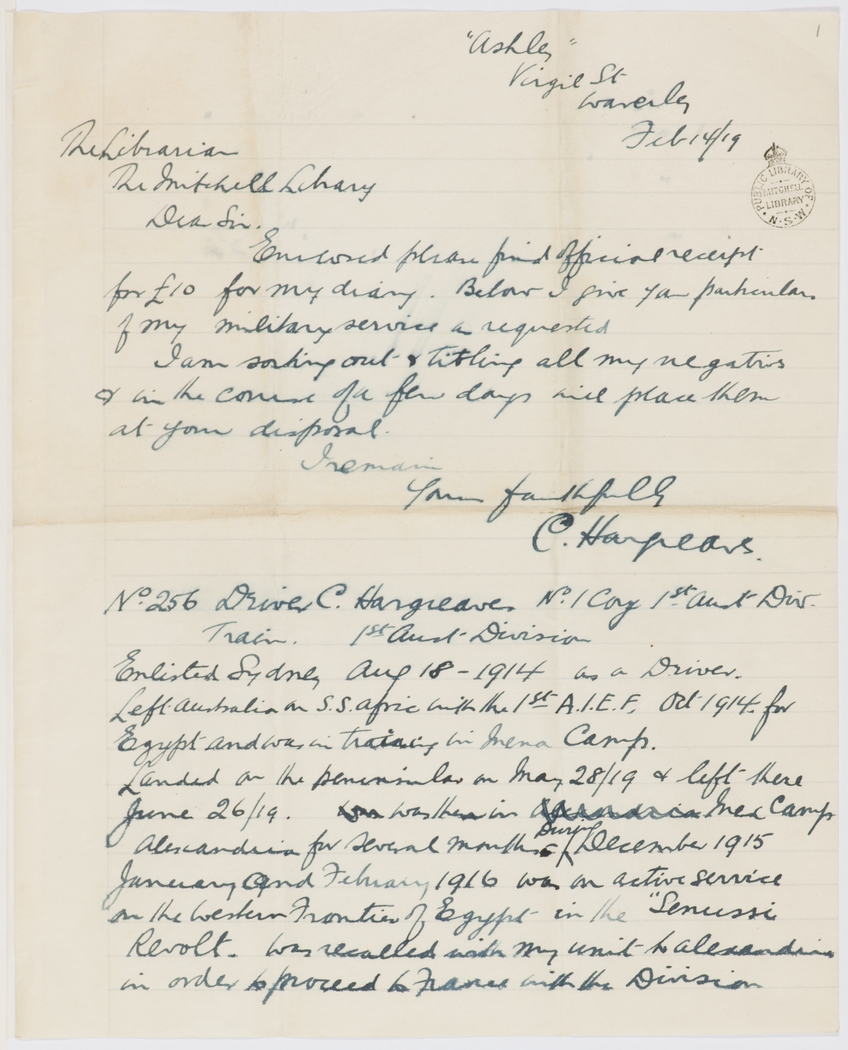 1
"Ashley"
Virgil St
Waverley
Feb 14/19
The Librarian
The Mitchell Library
PUBLIC LIBRARY OF N.S.W
MITCHELL LIBRARY
Dear Sir.
Enclosed please find official receipt
for £10 for my diary. Below I give you particulars
of my military service as requested
I am sorting out & titling all my negatives
& in the course of a few days will place them
at your disposal.
I remain
Yours faithfully
C. Hargreaves.
No. 256 Driver C. Hargreaves No. 1 Coy 1st Aust Div.
Train. 1st Aust Division
Enlisted Sydney Aug 18 - 1914 as a Driver.
Left Australia on S.S. Afric with the 1st A.I.E.F. Oct 1914 for
Egypt and was in training in Mena Camp.
Landed on the peninsular on May 28/19 & left there
June 26/19. was then in Mex Camp
Alexandria for several months During December 1915
January and February 1916 was on active service
on the Western Frontier of Egypt in the "Senussi
Revolt. was recalled with my unit to Alexandria
in order to proceed to France with the Division